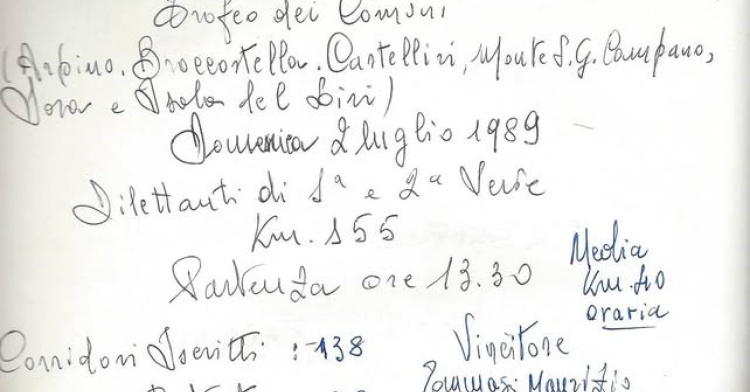 Trofeo dei Comuni
(Arpino, Broccostella, Castelliri, Monte S.G. Campano,
Sora e Isola del Liri)
Domenica 2 luglio 1989
Dilettanti di 1ª e 2ª Serie
Km. 155
Partenza ore 13.30
Media
Km. 40
oraria
Corridori Iscritti : -138
Vincitore
Tommasi Maurizio